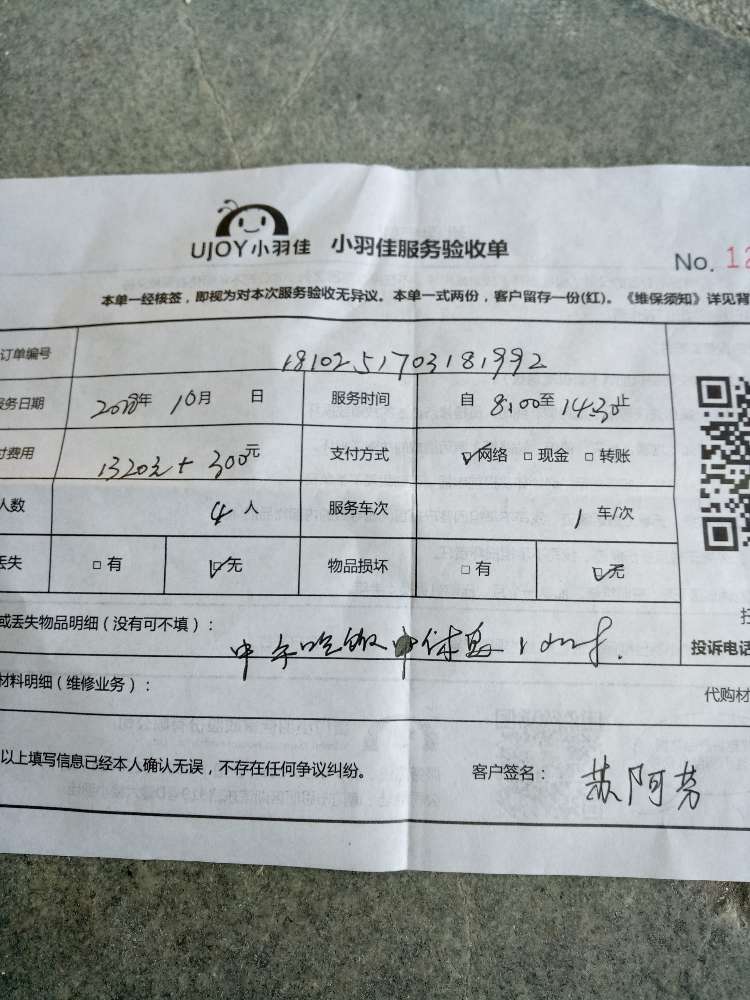 UJOY小羽佳 小羽佳服务验收单
No. 12
本单一经核签，即视为对本次服务验收无异议。本单一式两份，客户留存一份(红)。《维保须知》详见背
订单编号 1810251703181992
务日期 2018年 10月 日 服务时间 自 8:00至 14:30止
付费用 1320元+300元 支付方式 ☑网络 □现金 □转账
人数 4人 服务车次 1车/次
丢失 □有 ☑无 物品损坏 □有 ☑无
或丢失物品明细（没有可不填）： 中午吃饭 中休息1小时.
投诉电话
材料明细（维修业务）： 代购材
以上填写信息已经本人确认无误，不存在任何争议纠纷。 客户签名： 苏阿芳